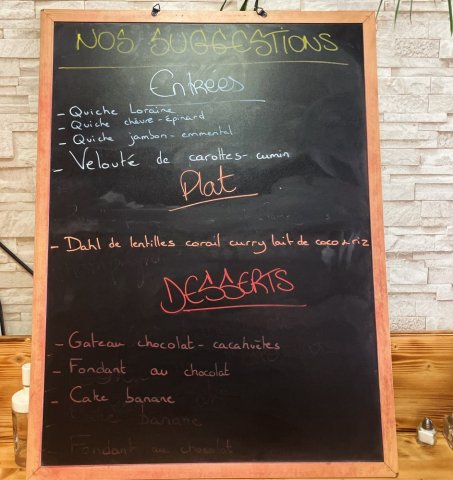 NOS SUGGESTIONS
Entrées
- Quiche Loraine
- Quiche chèvre - épinard
- Quiche jambon - emmental
- Velouté de carottes - cumin
Plat
- Dahl de lentilles corail curry lait de coco & riz
DESSERTS
- Gateau chocolat - cacahuètes
- Fondant au chocolat
- Cake banane
Cake banane
- Fondant au chocolat